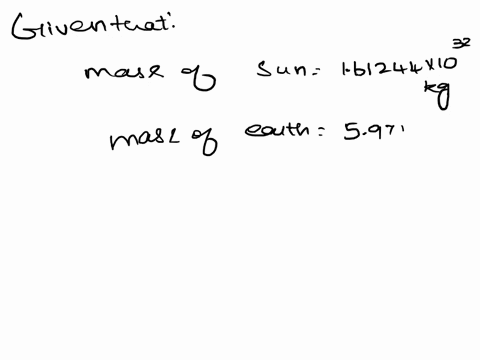 Given that:
mass of sun = 1.61244 × 10³² kg
mass of earth = 5.97